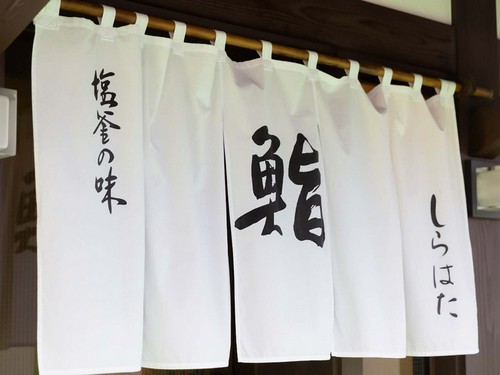 塩釜の味
鮨
しらはた